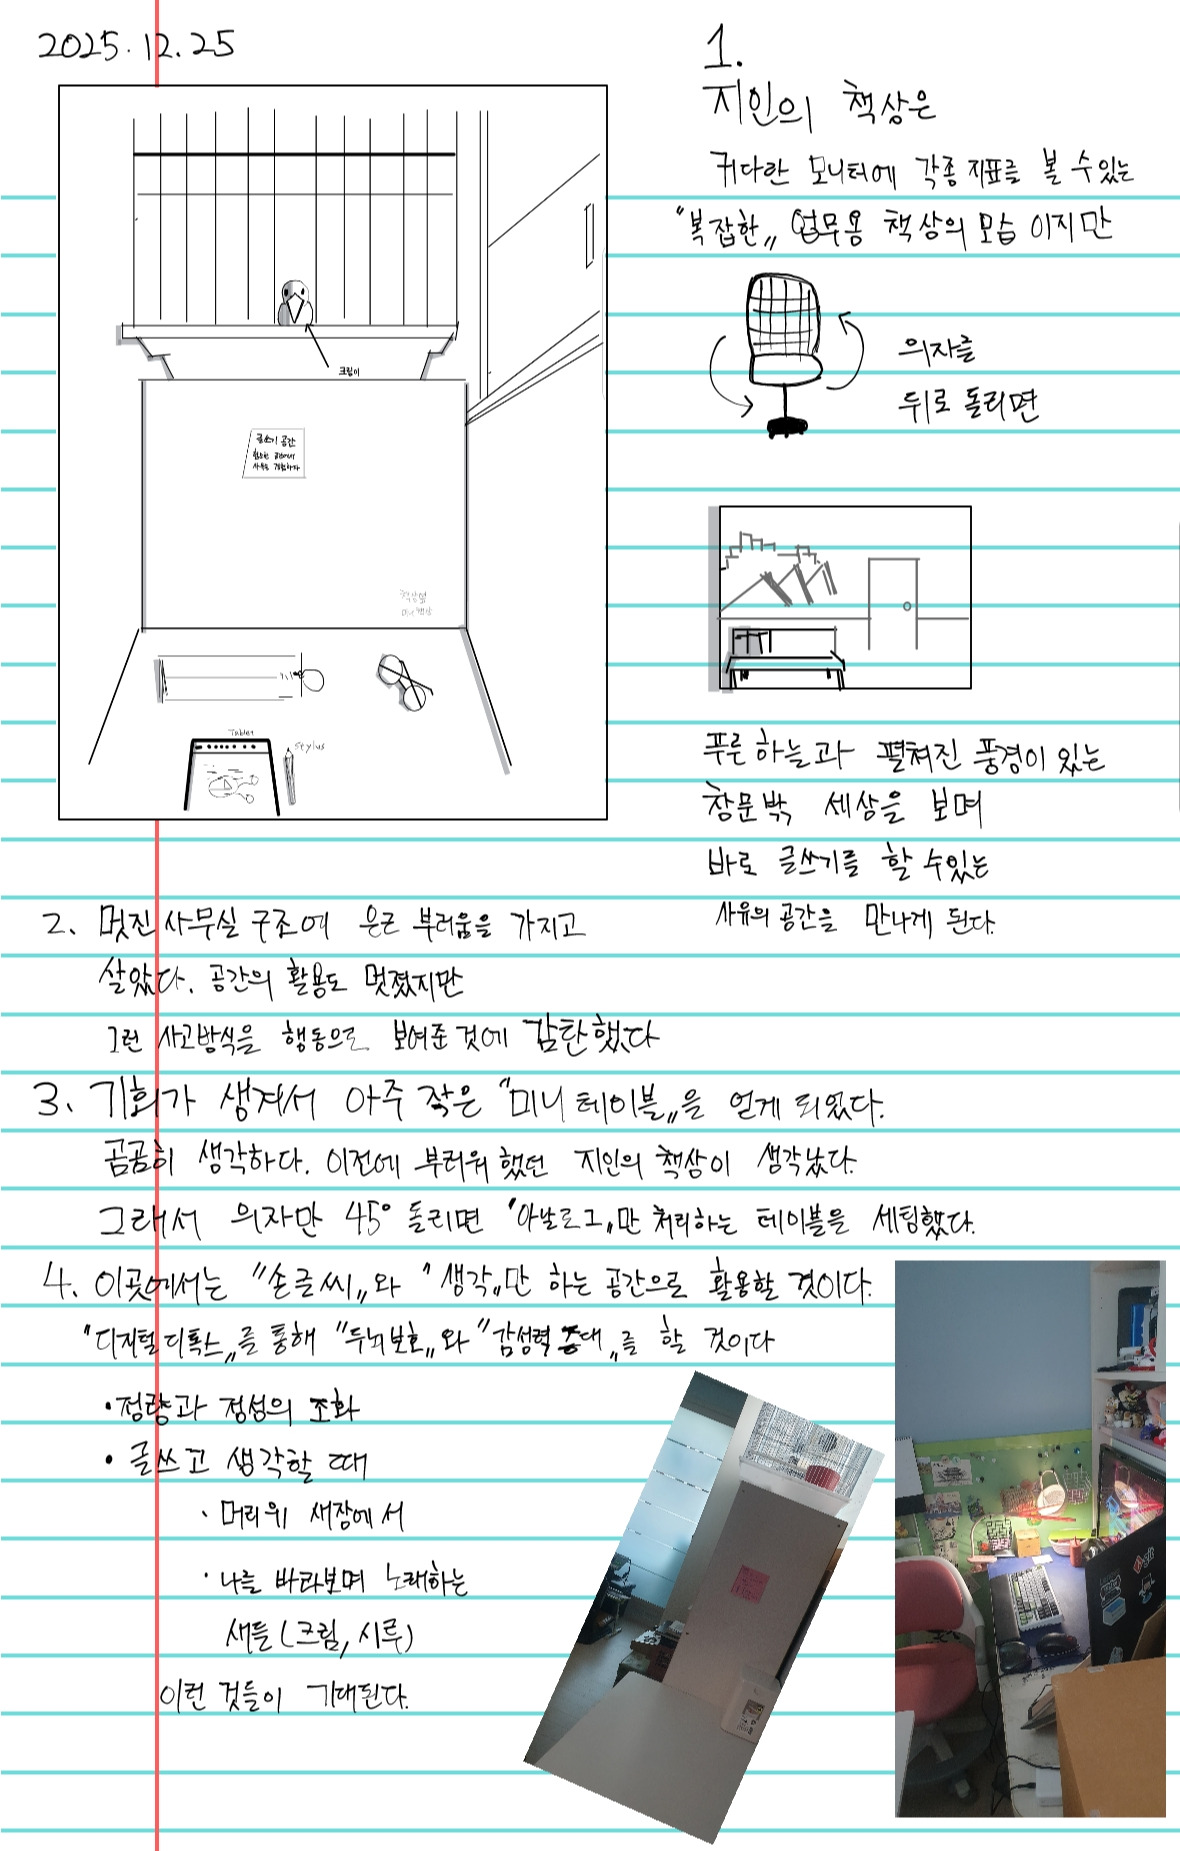 2025.12.25
크림이
글쓰기 공간
책상옆
미니책상
Tablet
stylus
1.
지인의 책상은
커다란 모니터에 각종 지표를 볼 수 있는
"복잡한" 업무용 책상의 모습 이지만
의자를
뒤로 돌리면
푸른 하늘과 펼쳐진 풍경이 있는
창문밖 세상을 보며
바로 글쓰기를 할 수 있는
사유의 공간을 만나게 된다.
2. 멋진 사무실 구조에 은근 부러움을 가지고
살았다. 공간의 활용도 멋졌지만
그런 사고방식을 행동으로 보여준 것에 감탄했다
3. 기회가 생겨서 아주 작은 "미니 테이블"을 얻게 되었다.
곰곰히 생각하다. 이전에 부러워 했던 지인의 책상이 생각났다.
그래서 의자만 45° 돌리면 "아날로그"만 처리하는 테이블을 세팅했다.
4. 이곳에서는 "손글씨"와 "생각"만 하는 공간으로 활용할 것이다.
"디지털 디톡스"를 통해 "두뇌보호"와 "감성력 증대"를 할 것이다
• 정량과 정성의 조화
• 글쓰고 생각할 때
• 머리위 새장에서
• 나를 바라보며 노래하는
새들 (크림, 시루)
이런 것들이 기대된다.
git